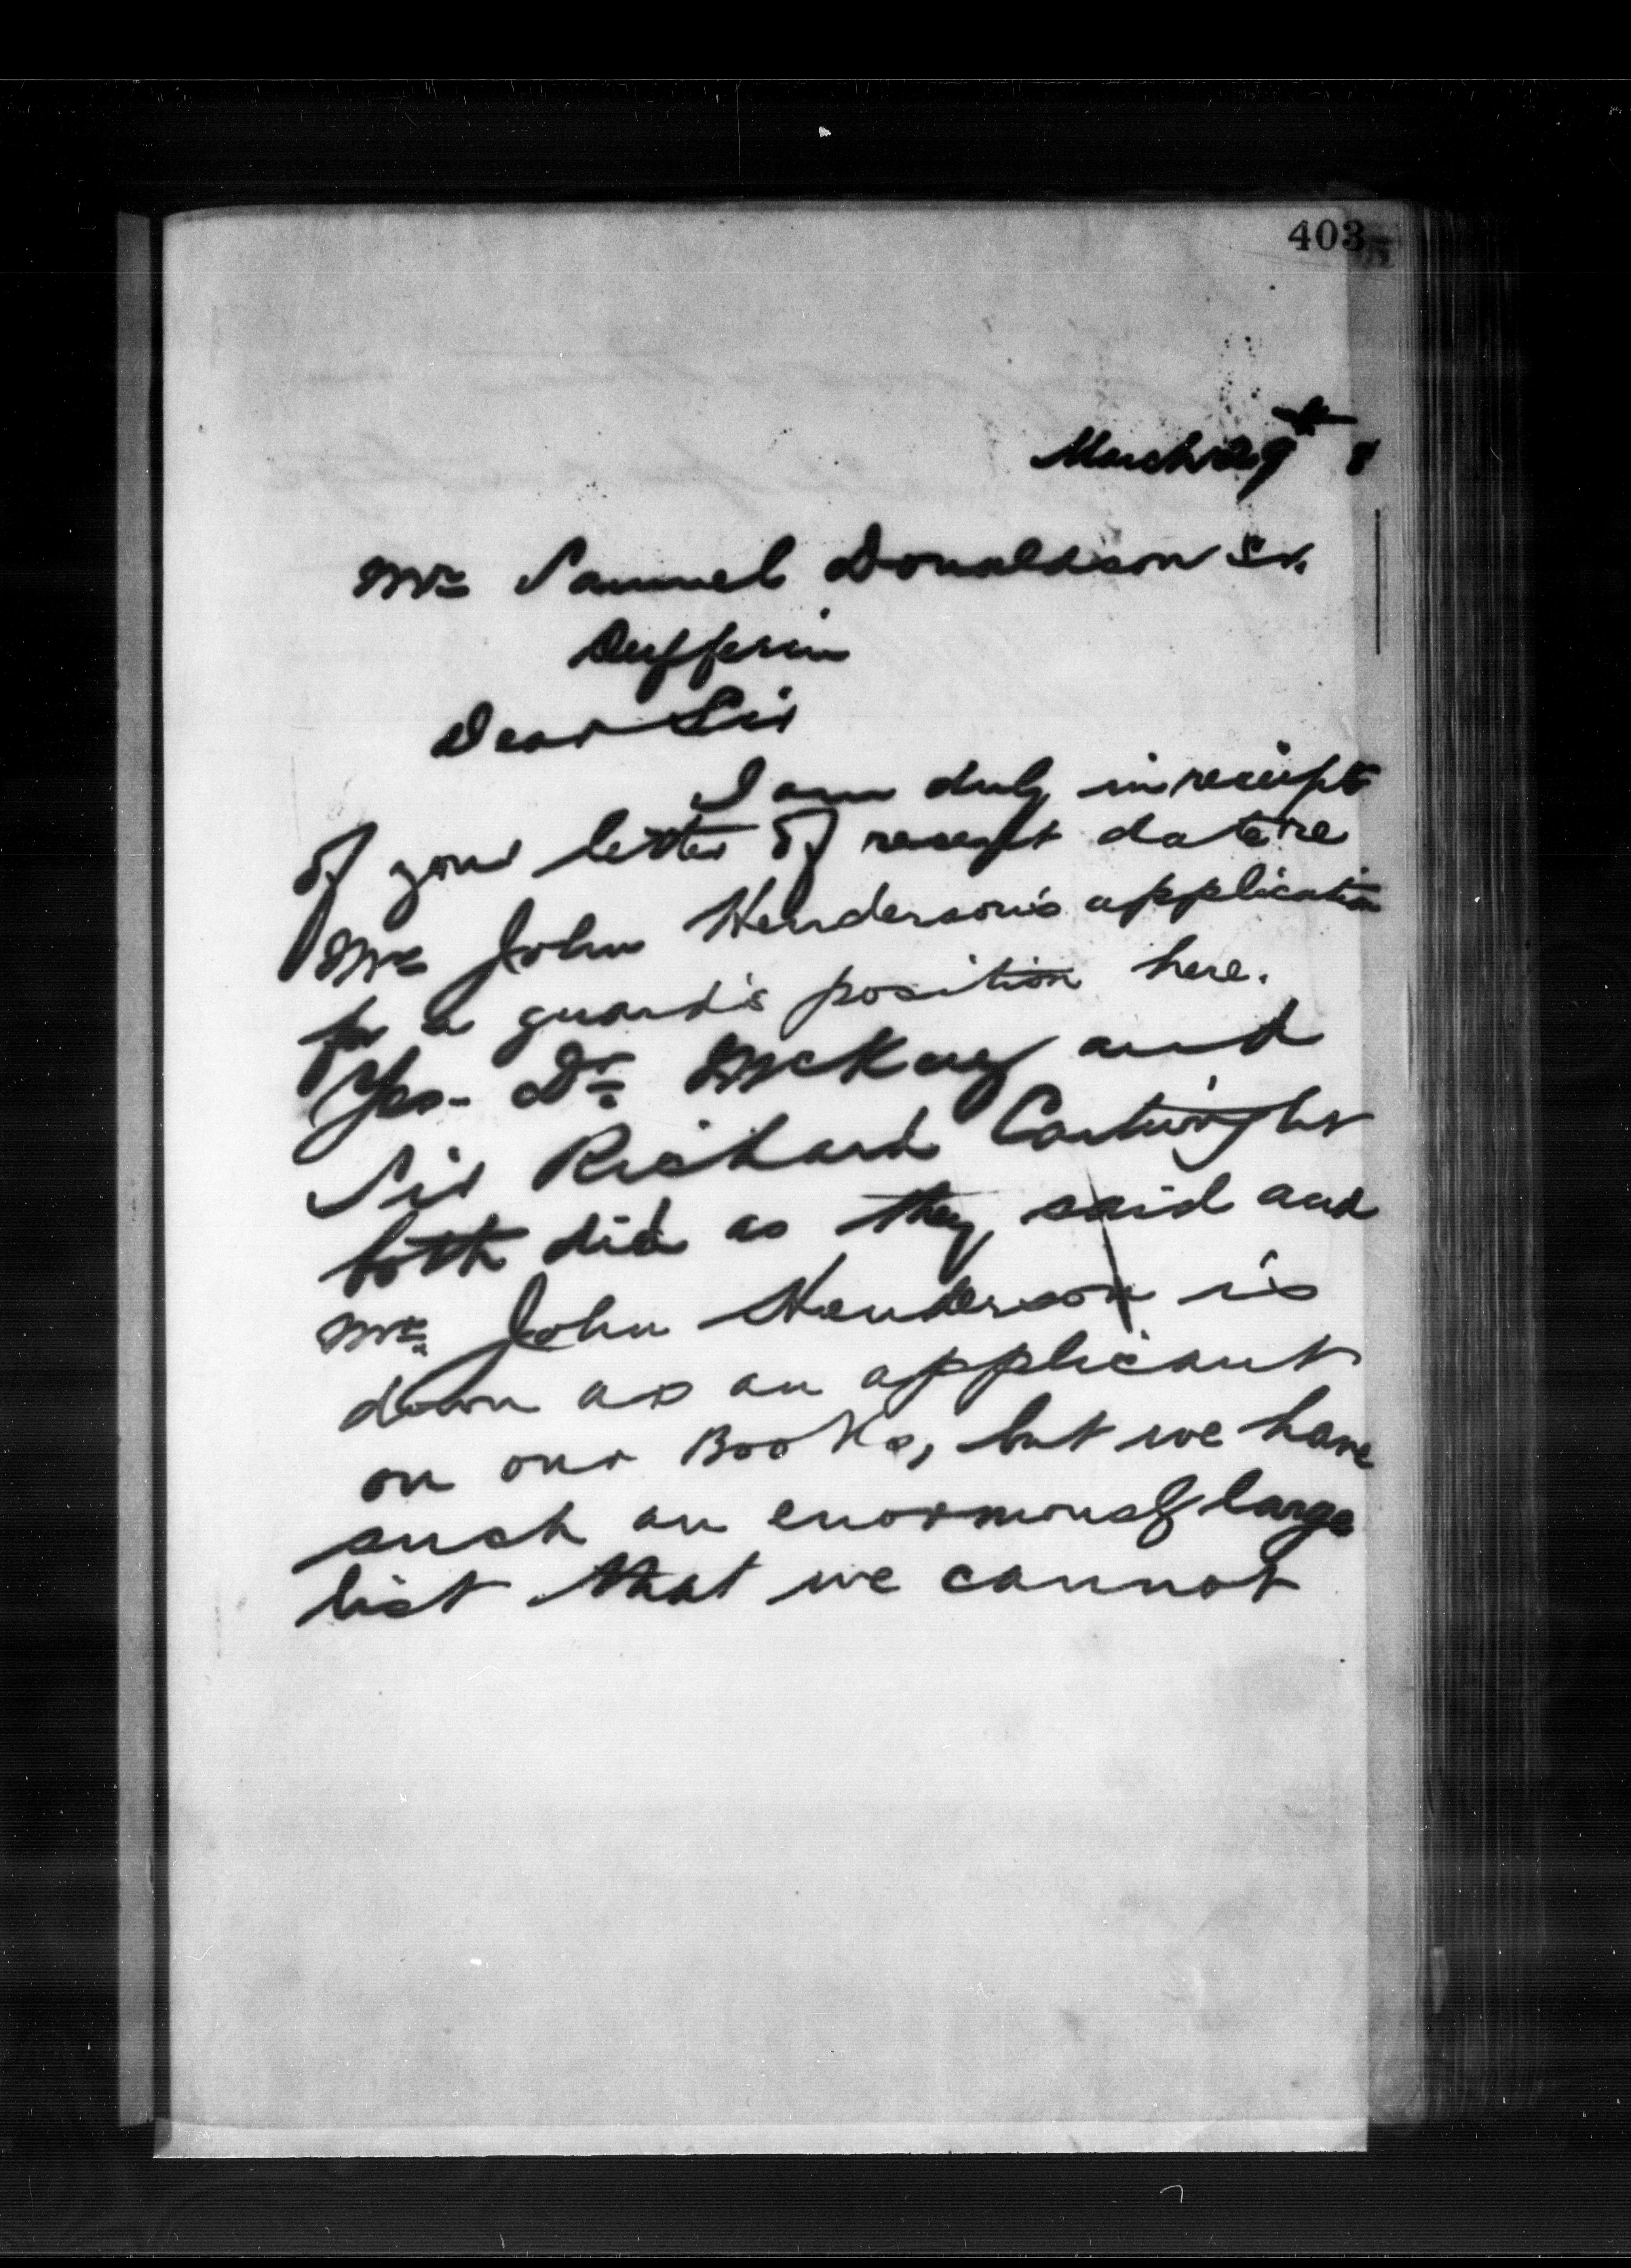 403
March 29th 8
Mr Samuel Donaldson Sr.
Dufferin
Dear Sir
I am duly in receipt
of your letter of recent date re
Mr John Henderson's application
for a guard's position here.
Yes - Dr McKay and
Sir Richard Cartwright
both did as they said and
Mr. John Henderson is
down as an applicant
on our Books, but we have
such an enormously large
list that we cannot